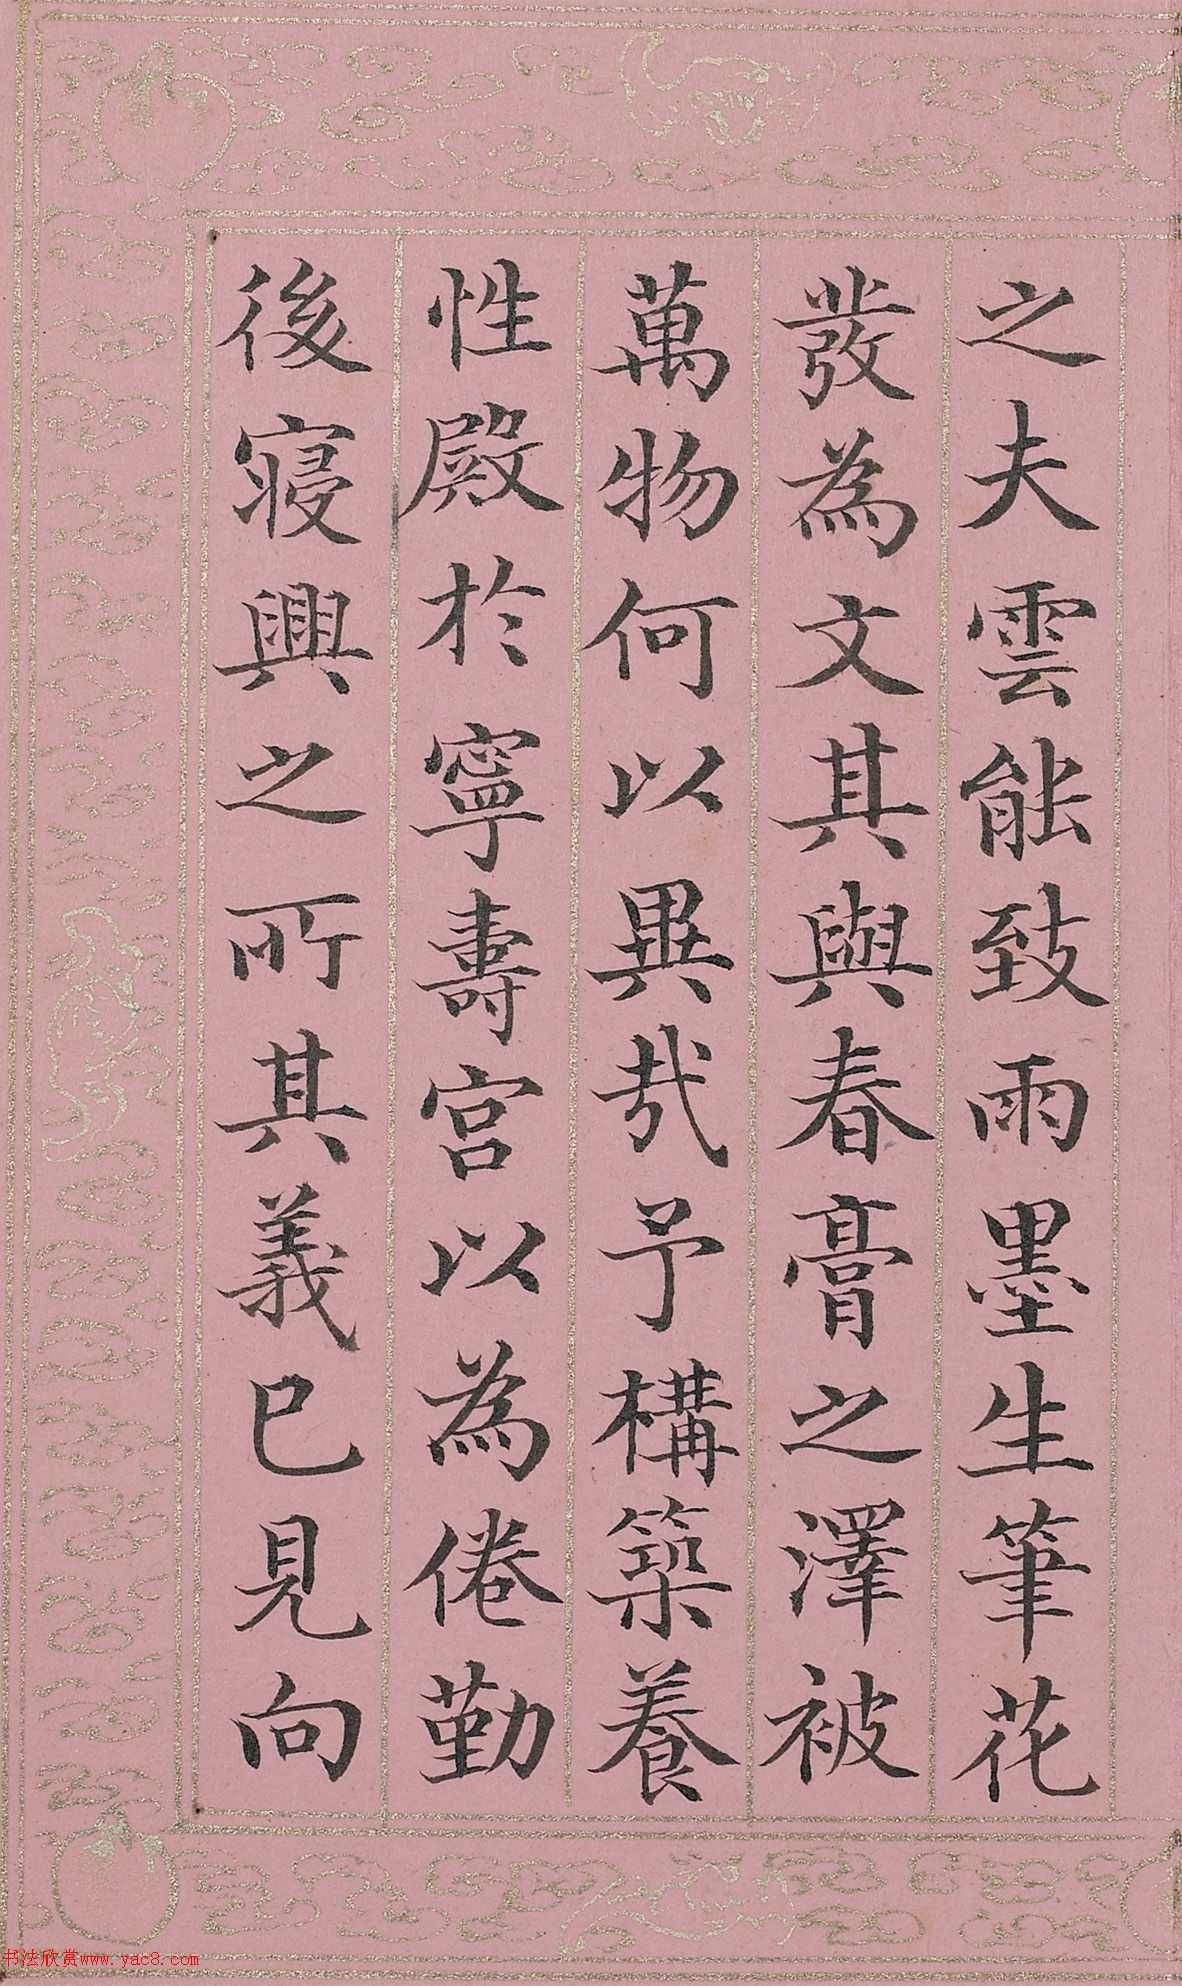 之夫雲能致雨墨生筆花
發為文其與春膏之澤被
萬物何以異哉予構築養
性殿於寧壽宮以為倦勤
後寢興之所其義已見向
书法欣赏www.yac8.com